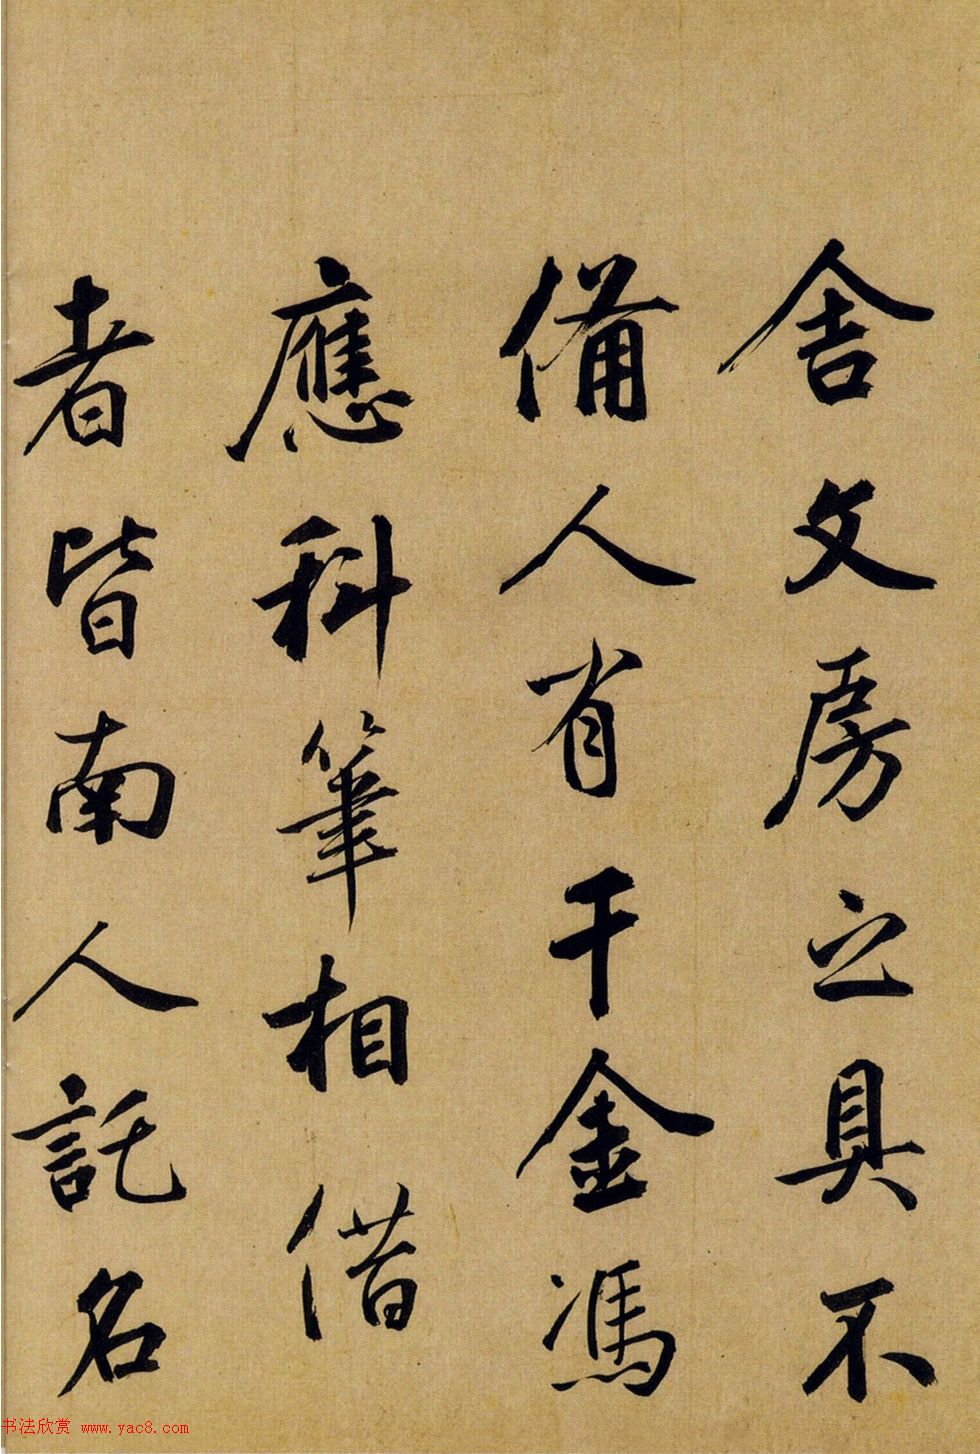 舍文房之具不
備人肖干金馮
應科筆相借
者皆南人託名
书法欣赏 www.yac8.com